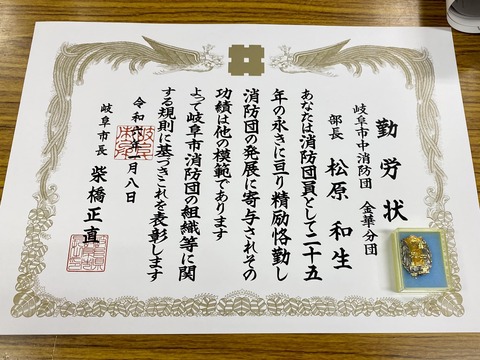 勤労状
岐阜市中消防団 金華分団
部長 松原和生
あなたは消防団員として二十五
年の永きに亘り精励恪勤し
消防団の発展に寄与されその
功績は他の模範であります
よって岐阜市消防団の組織等に関
する規則に基づきこれを表彰します
令和六年一月八日
岐阜市長 柴橋正直